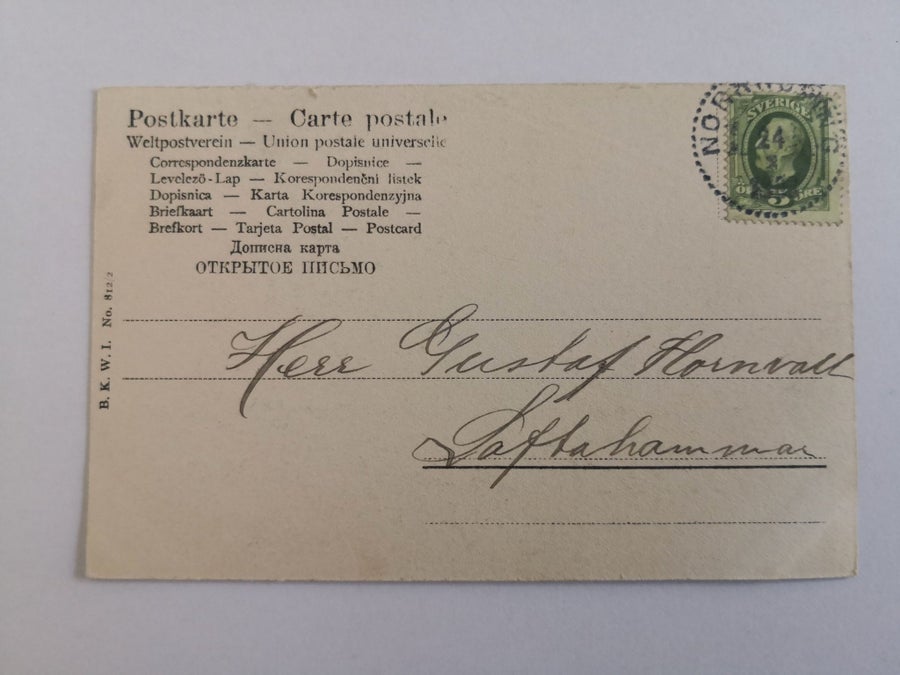 Postkarte — Carte postale
Weltpostverein — Union postale universelle
Correspondenzkarte — Dopisnice —
Levelező-Lap — Korespondenční lístek
Dopisnica — Karta Korespondenzyjna
Briefkaart — Cartolina Postale —
Brefkort — Tarjeta Postal — Postcard
Дописна карта
ОТКРЫТОЕ ПИСЬМО
B. K. W. I. No. 812/2
SVERIGE
24
5
ÖRE
Herr Gustaf Hornvall
Loftahammar